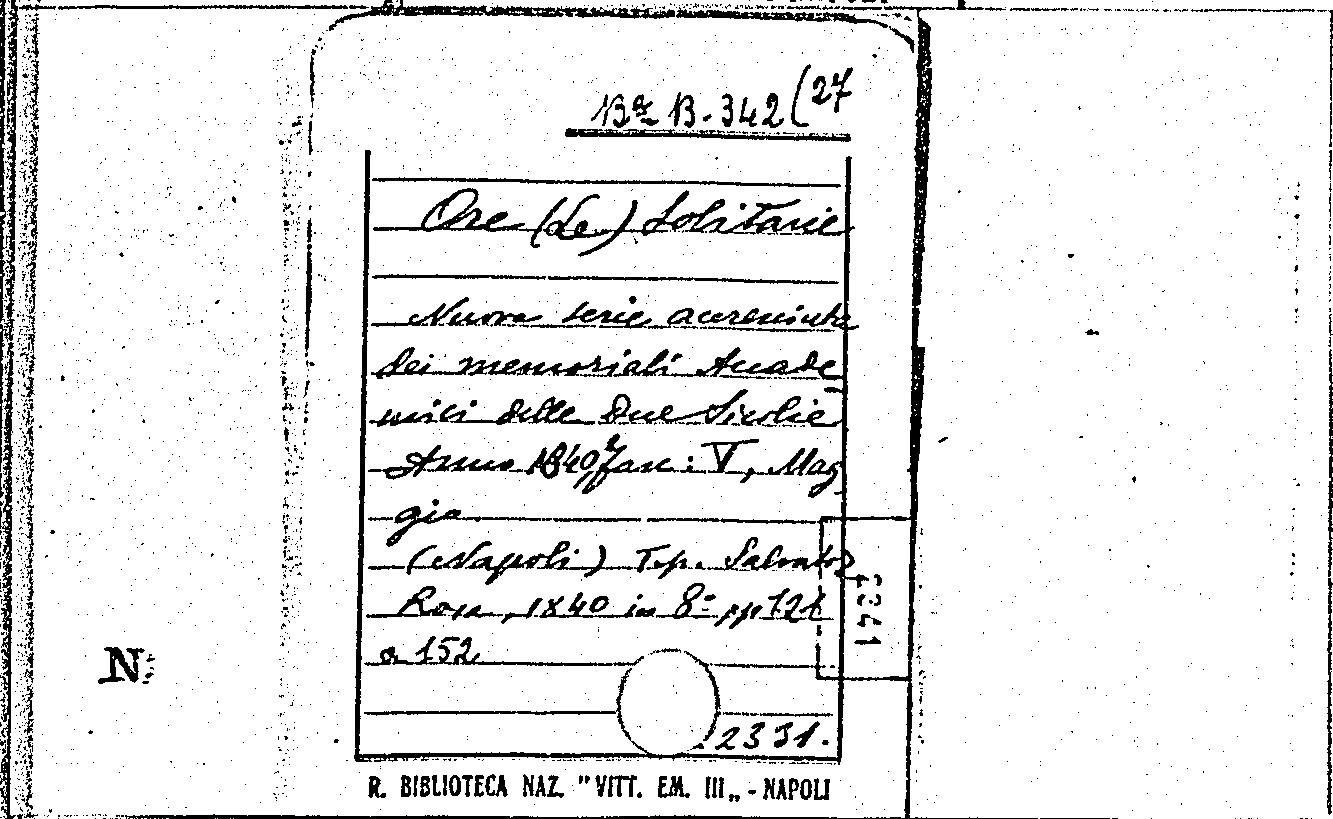 Ba B. 342 (27
Ore (Le) Solitarie
Nuova serie accresciuta
dei memoriali Accade
mici delle Due Sicilie
Anno 1840, fasc: V, Mag
gio
(Napoli) Tip. Salvator
Rosa, 1840 in 8º pp 121
a 152
2331.
R. BIBLIOTECA NAZ. "VITT. EM. III„ - NAPOLI
N